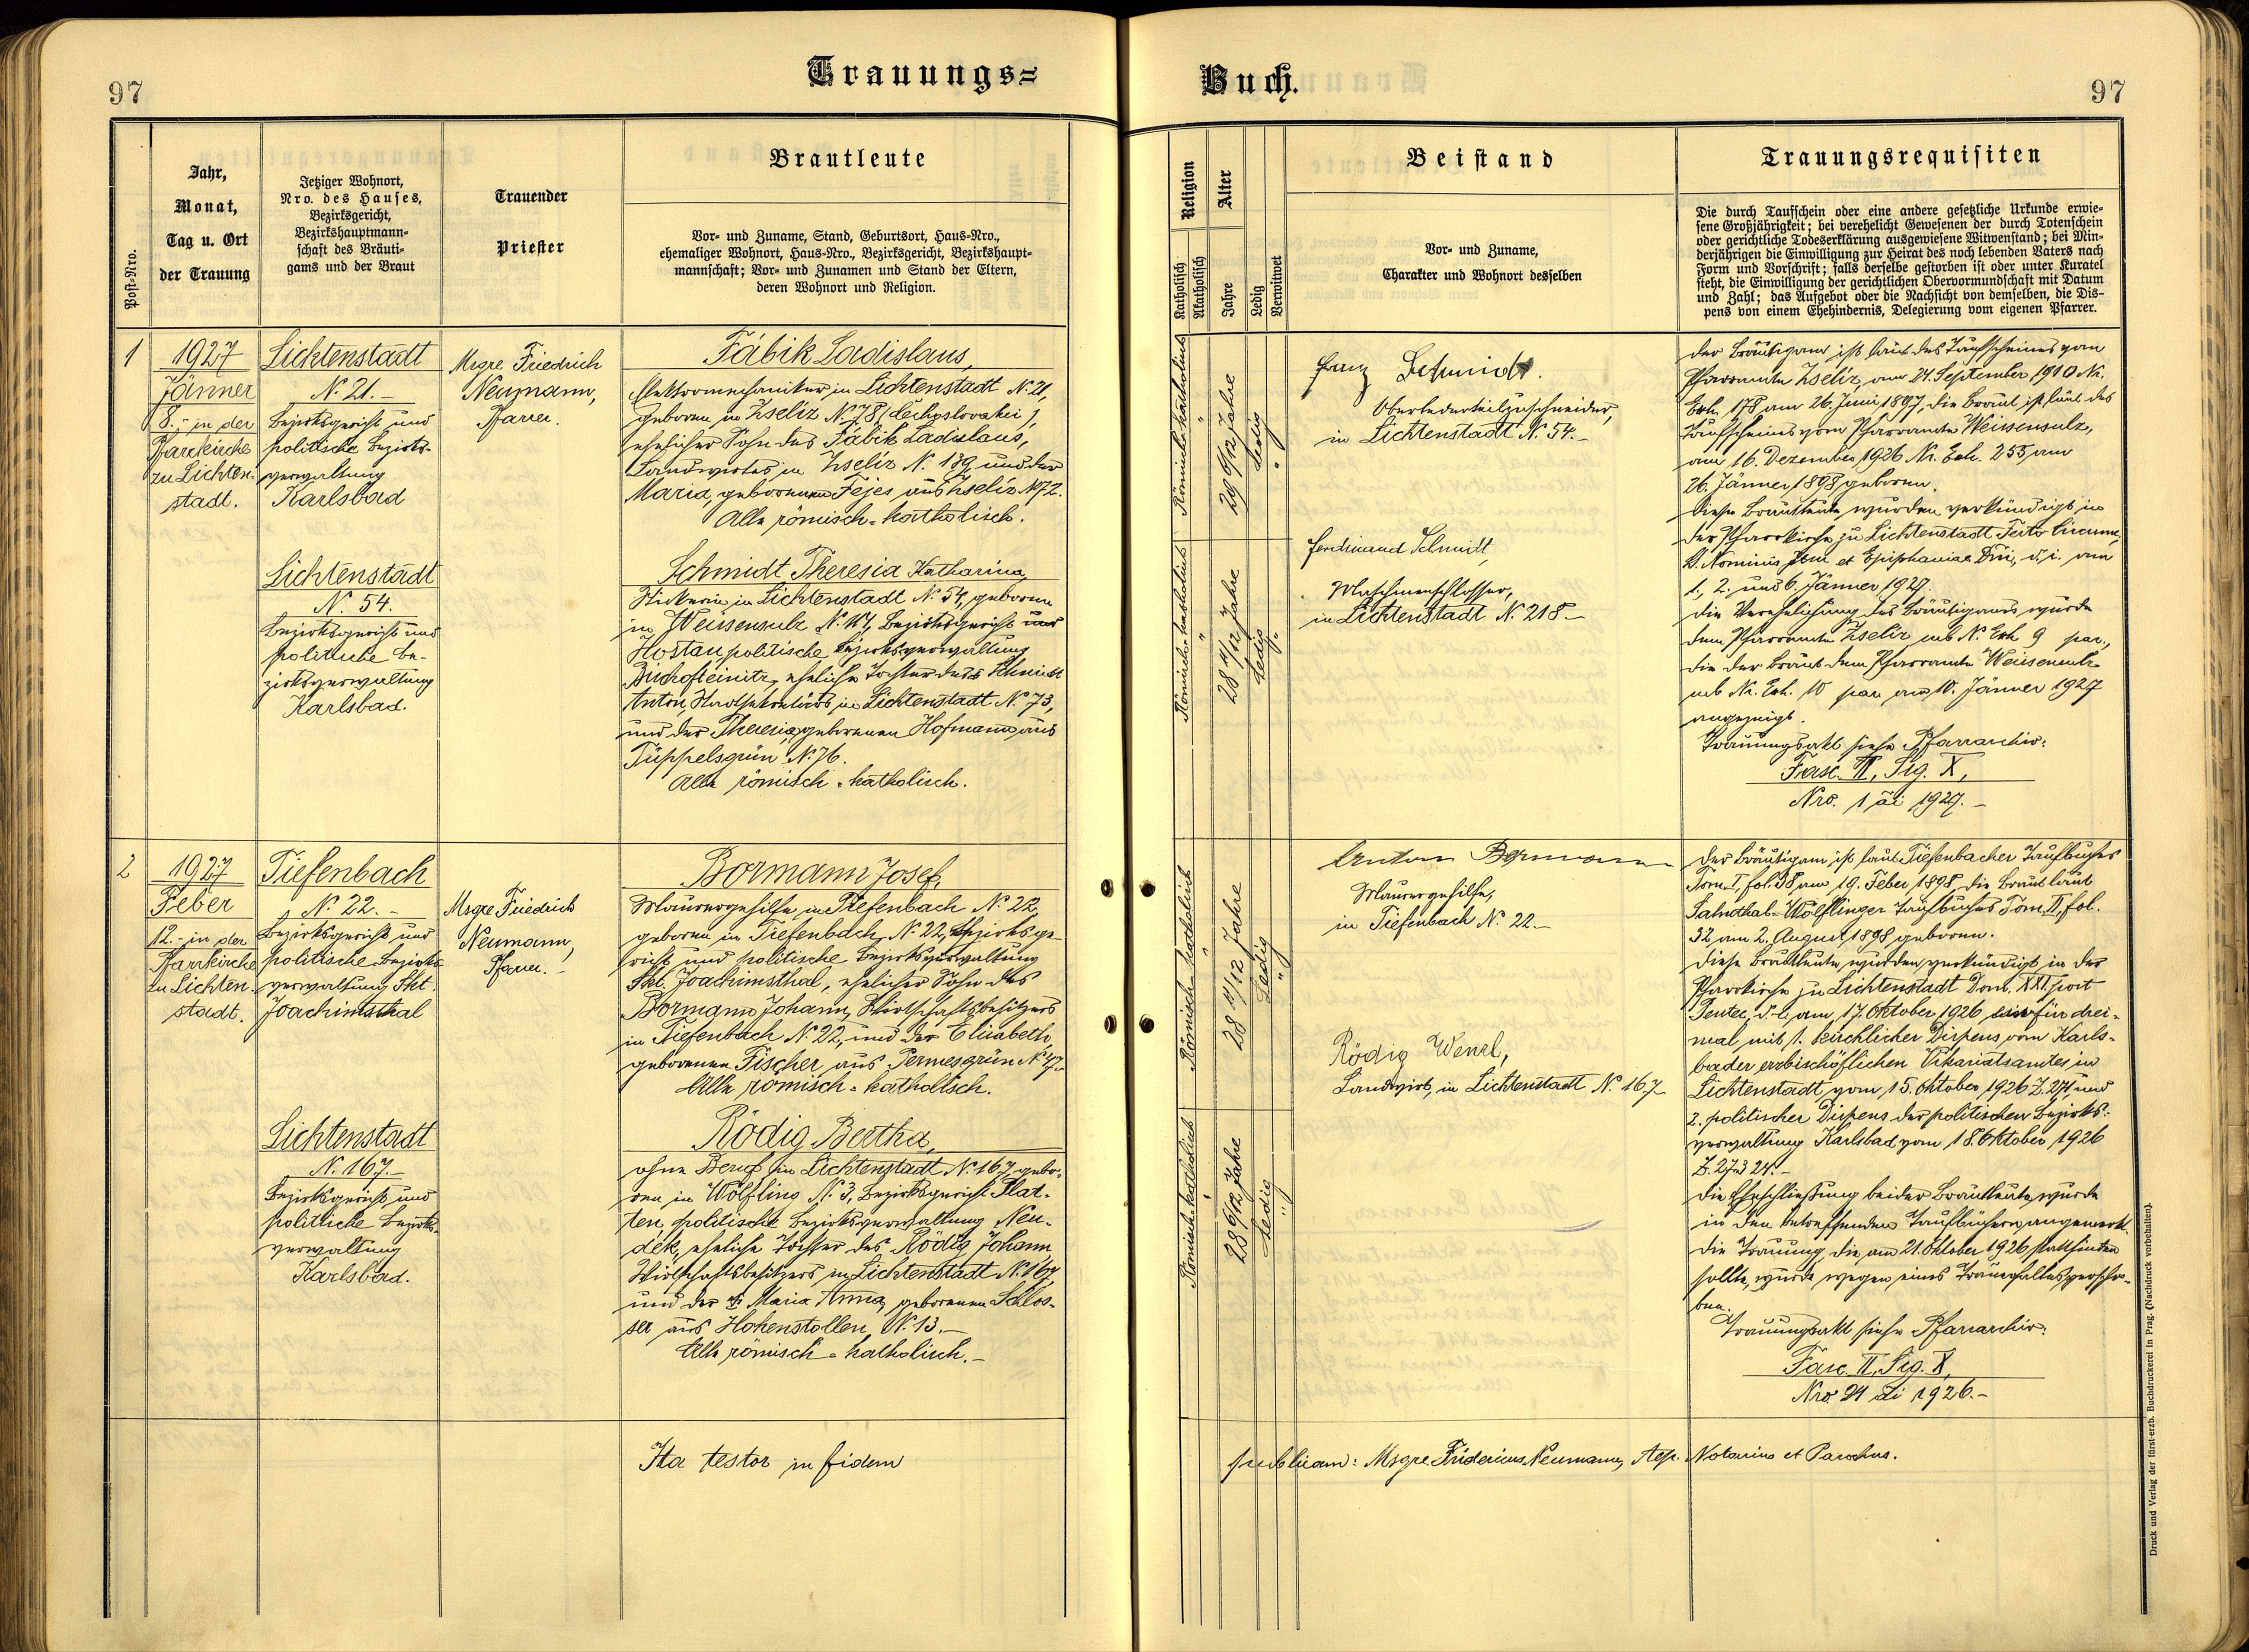 97
Trauungs=
Buch.
97
Post-Nro.
Jahr,
Monat,
Tag u. Ort
der Trauung
Jetziger Wohnort,
Nro. des Hauses,
Bezirksgericht,
Bezirkshauptmann-
schaft des Bräuti-
gams und der Braut
Trauender
Priester
Brautleute
Vor- und Zuname, Stand, Geburtsort, Haus-Nro.,
ehemaliger Wohnort, Haus-Nro., Bezirksgericht, Bezirkshaupt-
mannschaft; Vor- und Zunamen und Stand der Eltern,
deren Wohnort und Religion.
Religion
Katholisch
Akatholisch
Alter
Jahre
Ledig
Verwitwet
Beistand
Vor- und Zuname,
Charakter und Wohnort desselben
Trauungsrequisiten
Die durch Taufschein oder eine andere gesetzliche Urkunde erwie-
sene Großjährigkeit; bei verehelicht Gewesenen der durch Totenschein
oder gerichtliche Todeserklärung ausgewiesene Witwenstand; bei Min-
derjährigen die Einwilligung zur Heirat des noch lebenden Vaters nach
Form und Vorschrift; falls derselbe gestorben ist oder unter Kuratel
steht, die Einwilligung der gerichtlichen Obervormundschaft mit Datum
und Zahl; das Aufgebot oder die Nachsicht von demselben, die Dis-
pens von einem Ehehindernis, Delegierung vom eigenen Pfarrer.
1
1927
Jänner
8.- in der
Pfarrkirche
zu Lichten-
stadt.
Lichtenstadt
N. 21.-
Bezirksgericht und
politische Bezirks-
verwaltung
Karlsbad
Msgre Friedrich
Neumann,
Pfarrer.
Fábik Ladislaus,
Elektromechaniker in Lichtenstadt N. 21,
geboren in Zseliz N. 78 (Čechoslovakei),
ehelicher Sohn des Fábik Ladislaus,
Landwirtes in Zseliz N. 139 und der
Maria, geborenen Fejes aus Zseliz N. 72.
Alle römisch=katholisch.
Römisch-katholisch
29 6/12 Jahre
Ledig
"
Franz Schmidt.
Oberlederteilzuschneider,
in Lichtenstadt N. 54.-
Der Bräutigam ist laut des Taufscheines vom
Pfarramte Zseliz, am 24. September 1910 Nr.
Exh. 178 am 26. Juni 1897, die Braut ist laut des
Taufscheines vom Pfarramte Weissensulz,
am 16. Dezember 1926 Nr. Exh. 255 am
26. Jänner 1898 geboren.
Diese Brautleute wurden verkündigt in
der Pfarrkirche zu Lichtenstadt Festo Circumc.
D. Nominis Jesu et Epiphaniae Dni, d. i. am
1., 2. und 6. Jänner 1927.
Die Verehelichung des Bräutigams wurde
dem Pfarramte Zseliz sub N. Exh 9 par,
die der Braut dem Pfarramte Weissensulz
sub Nr. Exh. 10 par am 10. Jänner 1927
angezeigt.
Trauungsakt siehe Pfarrarchiv:
Fasc. II, Sig. X,
Nro. 1 ai 1927.-
Lichtenstadt
N. 54.
Bezirksgericht und
politische Be-
zirksverwaltung
Karlsbad.
Schmidt Theresia Katharina,
Stickerin in Lichtenstadt N. 54, geboren
in Weissensulz N. 117, Bezirksgericht und
Hostau politische Bezirksverwaltung
Bischofteinitz, eheliche Tochter des Schmidt
Anton, Stadtsekretärs in Lichtenstadt N. 73,
und der Theresia, geborenen Hofmann aus
Tüppelsgrün N. 76.
Alle römisch=katholisch.
Römisch-katholisch
28 11/12 Jahre
Ledig
Ferdinand Schmidt,
Maschinenschlosser,
in Lichtenstadt N. 218.-
2
1927
Feber
12.- in der
Pfarrkirche
zu Lichten-
stadt.
Tiefenbach
N. 22.-
Bezirksgericht und
politische Bezirks-
verwaltung Skt.
Joachimsthal
Msgre Friedrich
Neumann,
Pfarrer.-
Bormann Josef,
Maurergehilfe in Tiefenbach N. 22,
geboren in Tiefenbach, N. 22, Bezirksge-
richt und politische Bezirksverwaltung
Skt. Joachimsthal, ehelicher Sohn des
Bormann Johann, Wirtschaftsbesitzers
in Tiefenbach N. 22, und der Elisabeth,
geborenen Fischer aus Permesgrün N. 17.
Alle römisch=katholisch.
Römisch-katholisch
28 11/12 Jahre
Ledig
"
Anton Bormann
Maurergehilfe,
in Tiefenbach N. 22.-
Der Bräutigam ist laut Tiefenbacher Taufbuches
Tom. I, fol. 38 am 19. Feber 1898, die Braut laut
Salmthal-Wölflinger Taufbuches Tom. II, fol.
32 am 2. August 1898 geboren.
Diese Brautleute wurden verkündigt in der
Pfarrkirche zu Lichtenstadt Dom. XXI. post
Pentec. d. i. am 17. Oktober 1926 ein für drei-
mal mit 1. kirchlicher Dispens vom Karls-
bader erzbischöflichen Vikariatsamtes in
Lichtenstadt vom 15. Oktober 1926 Z. 271 und
2. politischer Dispens der politischen Bezirks-
verwaltung Karlsbad vom 18. Oktober 1926
Z. 27324.-
Die Eheschließung beider Brautleute wurde
in den betreffenden Taufbüchern angemerkt.
Die Trauung, die am 21. Oktober 1926 stattfinden
sollte, wurde wegen eines Trauerfalles verscho-
ben.
Trauungsakt siehe Pfarrarchiv:
Fasc. II, Sig. X,
Nro. 24 ai 1926.-
Lichtenstadt
N. 167.-
Bezirksgericht und
politische Bezirks-
verwaltung
Karlsbad.
Rödig Bertha,
ohne Beruf in Lichtenstadt N. 167, gebo-
ren in Wölfling N. 3, Bezirksgericht Plat-
ten, politische Bezirksverwaltung Neu-
dek, eheliche Tochter des Rödig Johann,
Wirtschaftsbesitzers in Lichtenstadt N. 167,
und der Maria Anna, geborenen Schlos-
ser aus Hohenstollen N. 13.-
Alle römisch=katholisch.-
Römisch-katholisch
28 6/12 Jahre
Ledig
"
Rödig Wenzl,
Landwirt, in Lichtenstadt N. 167-
Ita testor in fidem
publicam: Msgre Fridericus Neumann, Aep. Notarius et Parochus.
Druck und Verlag der fürst-erzb. Buchdruckerei in Prag. (Nachdruck vorbehalten).